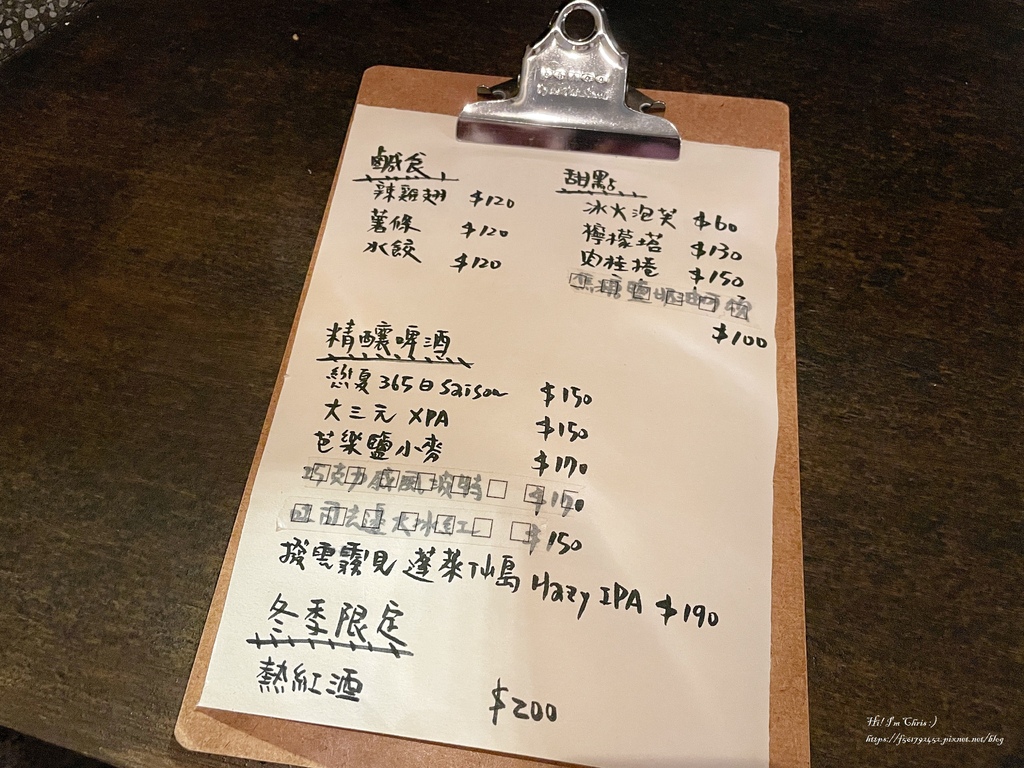 鹹食
辣雞翅 $120
薯條 $120
水餃 $120
甜點
冰火泡芙 $60
檸檬塔 $130
肉桂捲 $150
$100
精釀啤酒
戀夏365日 Saison $150
大三元 XPA $150
芭樂鹽小麥 $170
巧克力 $170
$150
撥雲霧見蓬萊仙島 Hazy IPA $190
冬季限定
熱紅酒 $200
Hi! I'm Chris :)
https://f561792452.pixnet.net/blog